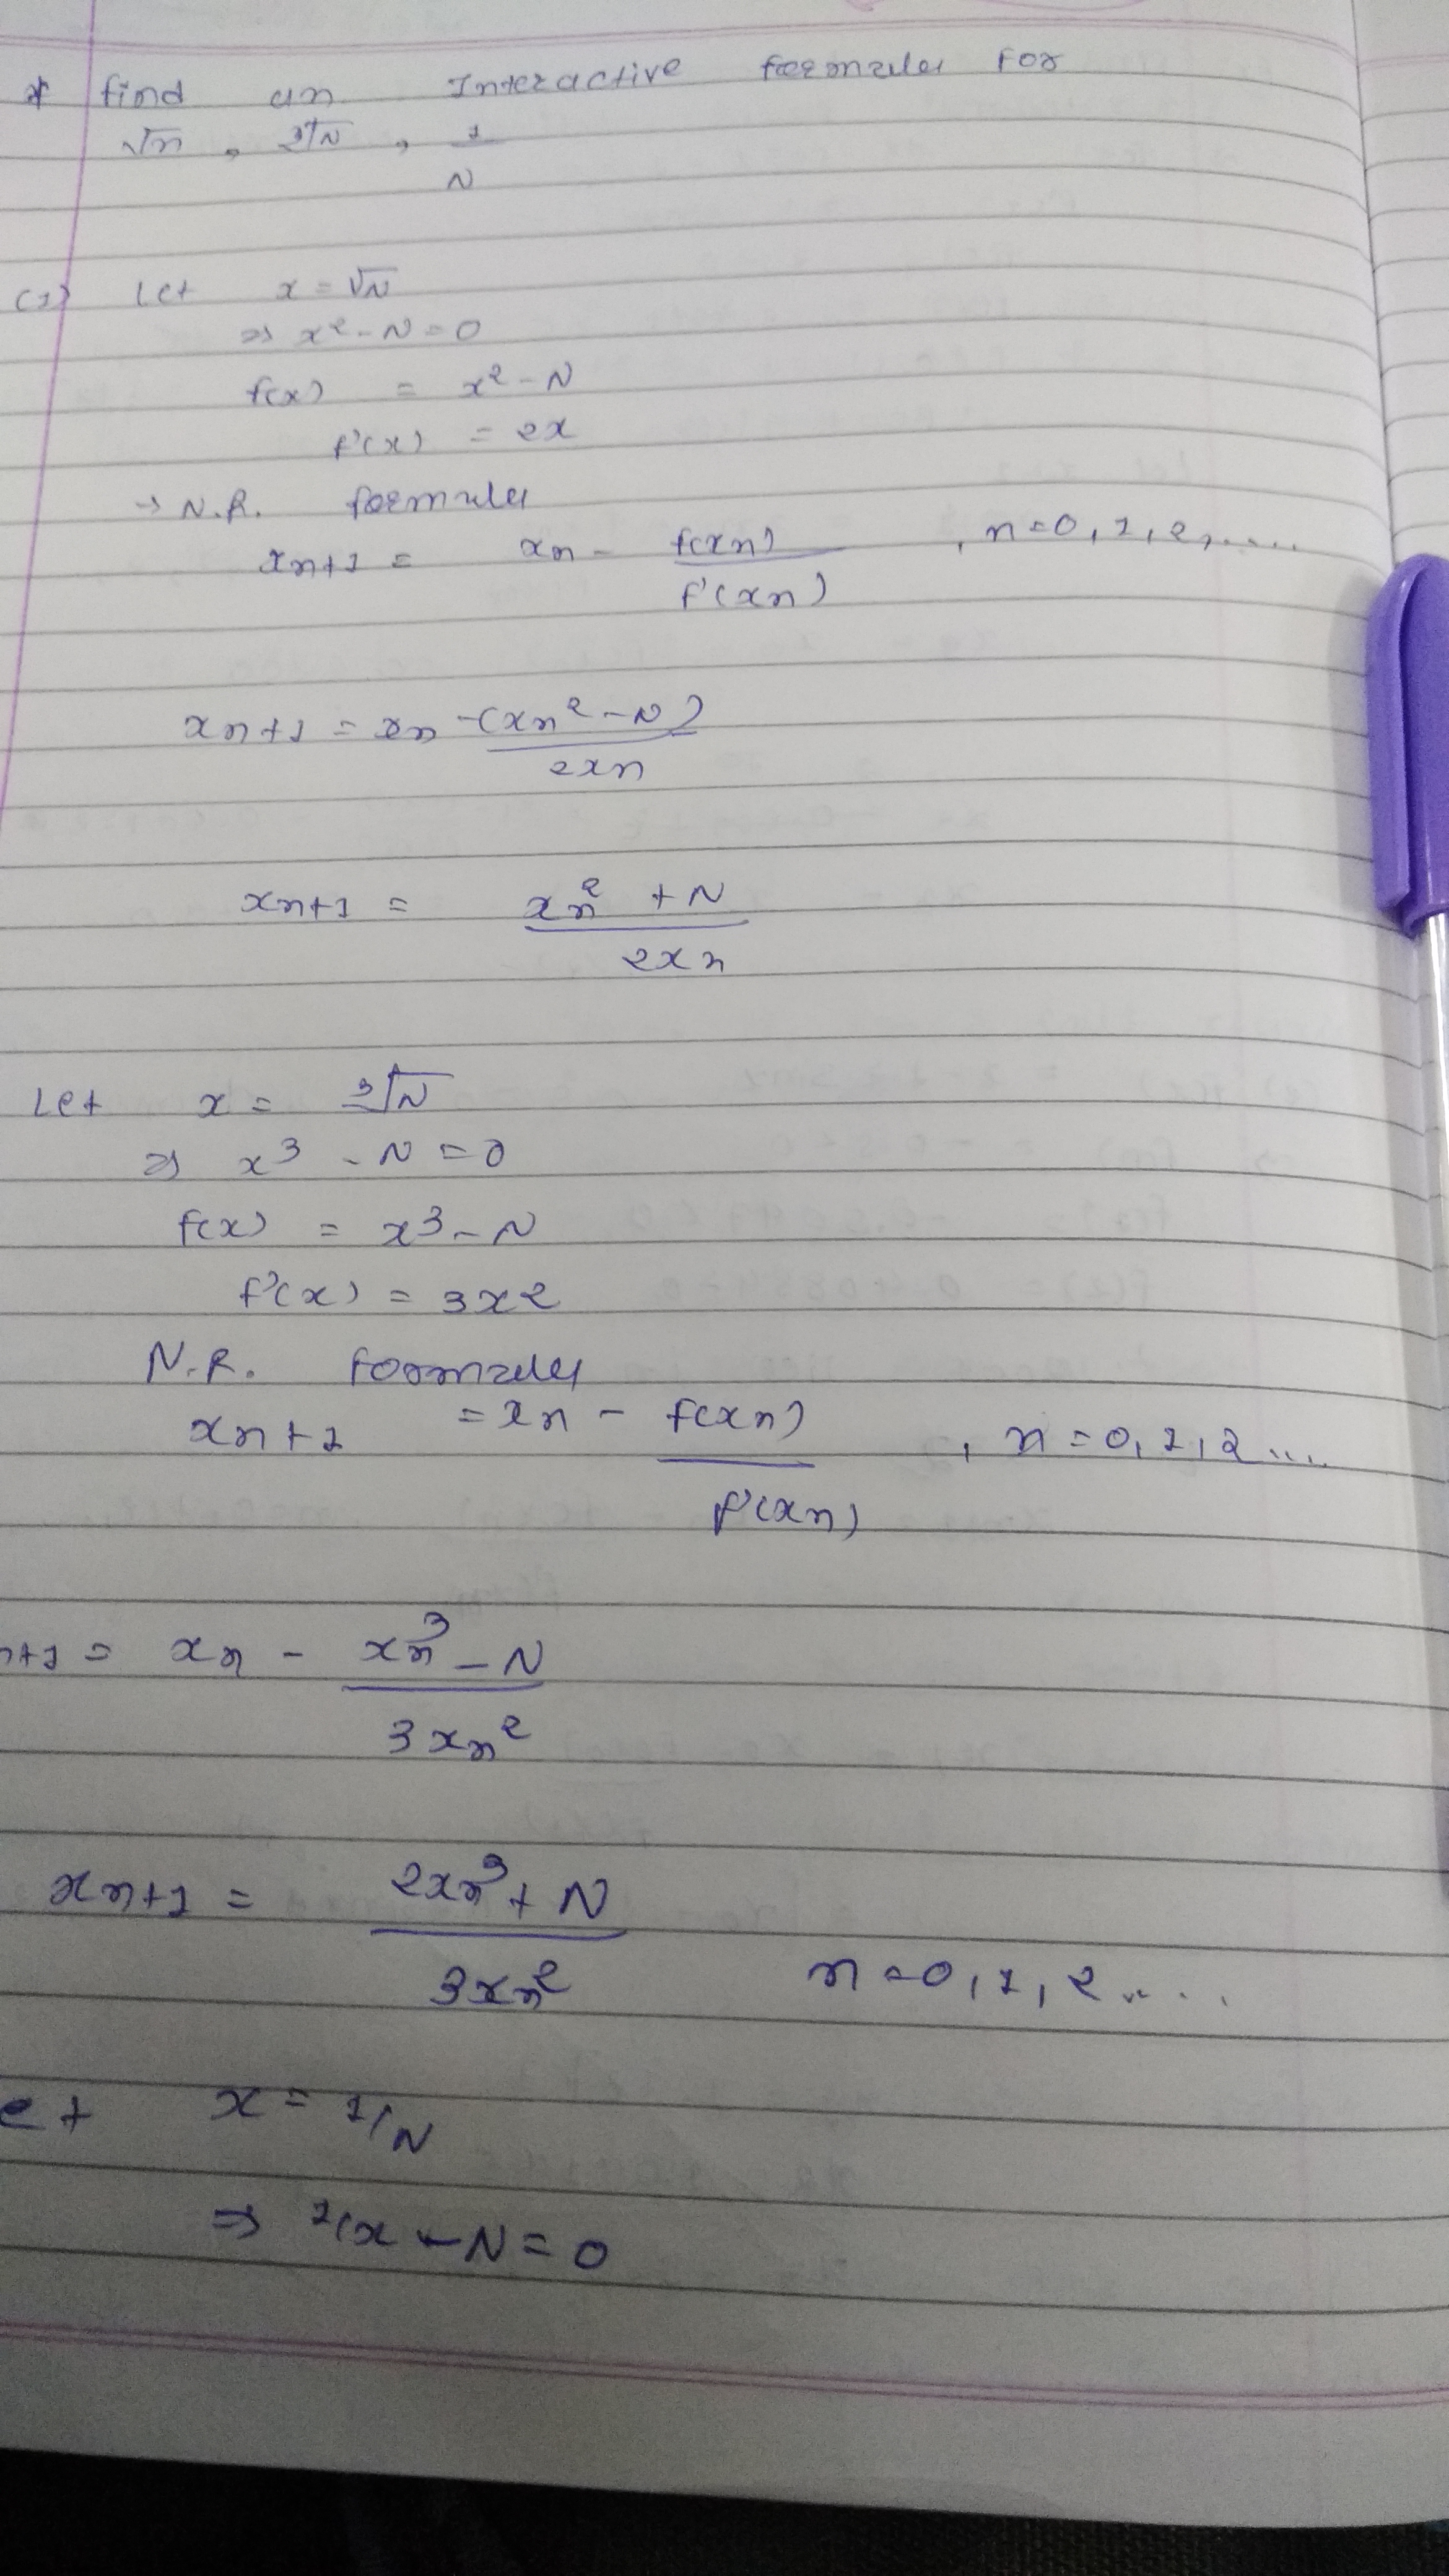 * find an Interactive formula for
√n , ³√N , 1/N
(1) Let x = √N
⇒ x² - N = 0
f(x) = x² - N
f'(x) = 2x
→ N.R. formula
xn+1 = xn - f(xn)/f'(xn) , n=0,1,2,.....
xn+1 = xn - (xn² - N)/2xn
xn+1 = xn² + N/2xn
Let x = ³√N
⇒ x³ - N = 0
f(x) = x³ - N
f'(x) = 3x²
N.R. formula
xn+1 = xn - f(xn)/f'(xn) , n = 0,1,2....
n+1 = xn - xn³ - N/3xn²
xn+1 = 2xn³ + N/3xn² n=0,1,2.....
et x = 1/N
⇒ 1/x - N = 0